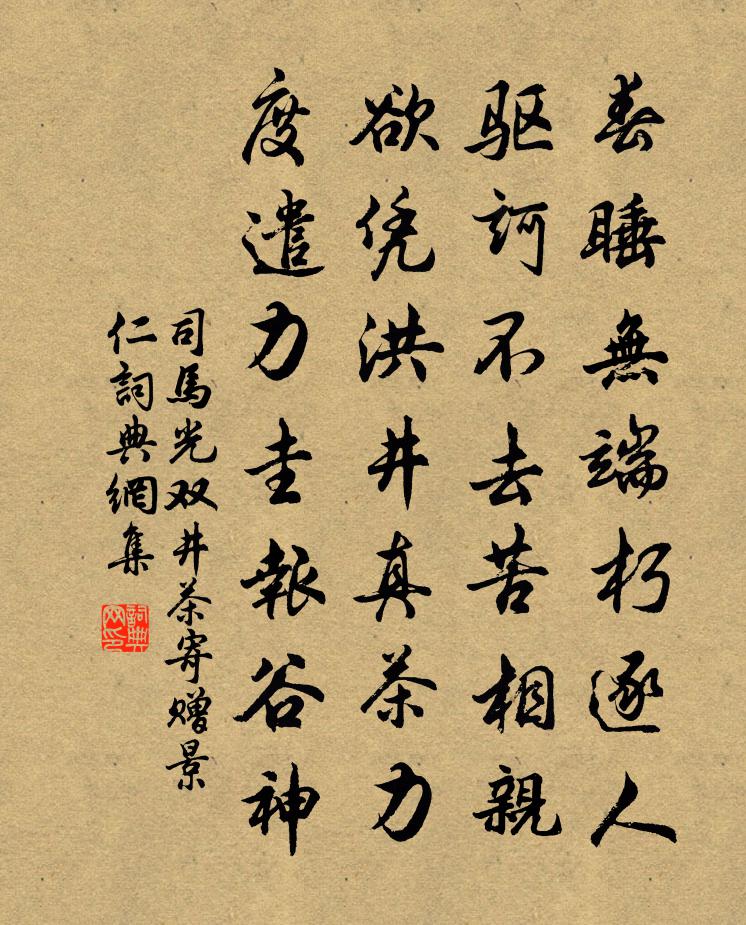 春睡無端朽逐人
驱訶不去苦相親
欲凭洪井真茶力
度遣力圭報谷神
司馬光双井茶寄赠景
仁詞典網集
詞典
网印